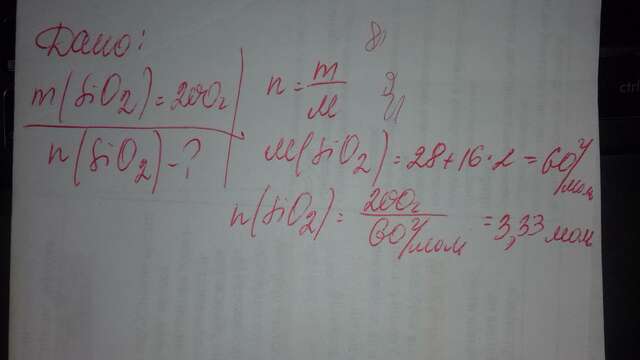 Дано:
m(SiO2)=200г
n(SiO2)-?
8)
n = m/M
M(SiO2) = 28+16·2 = 60 г/моль
n(SiO2) = 200г / 60 г/моль = 3,33 моль